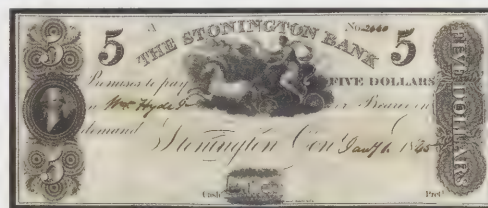 5 No. 2660
5 THE STONINGTON BANK 5
Promises to pay FIVE DOLLARS
Wm Hyde Jr or Bearer on
demand
Stonington Con
Cash
Pres
5
FIVE DOLLARS